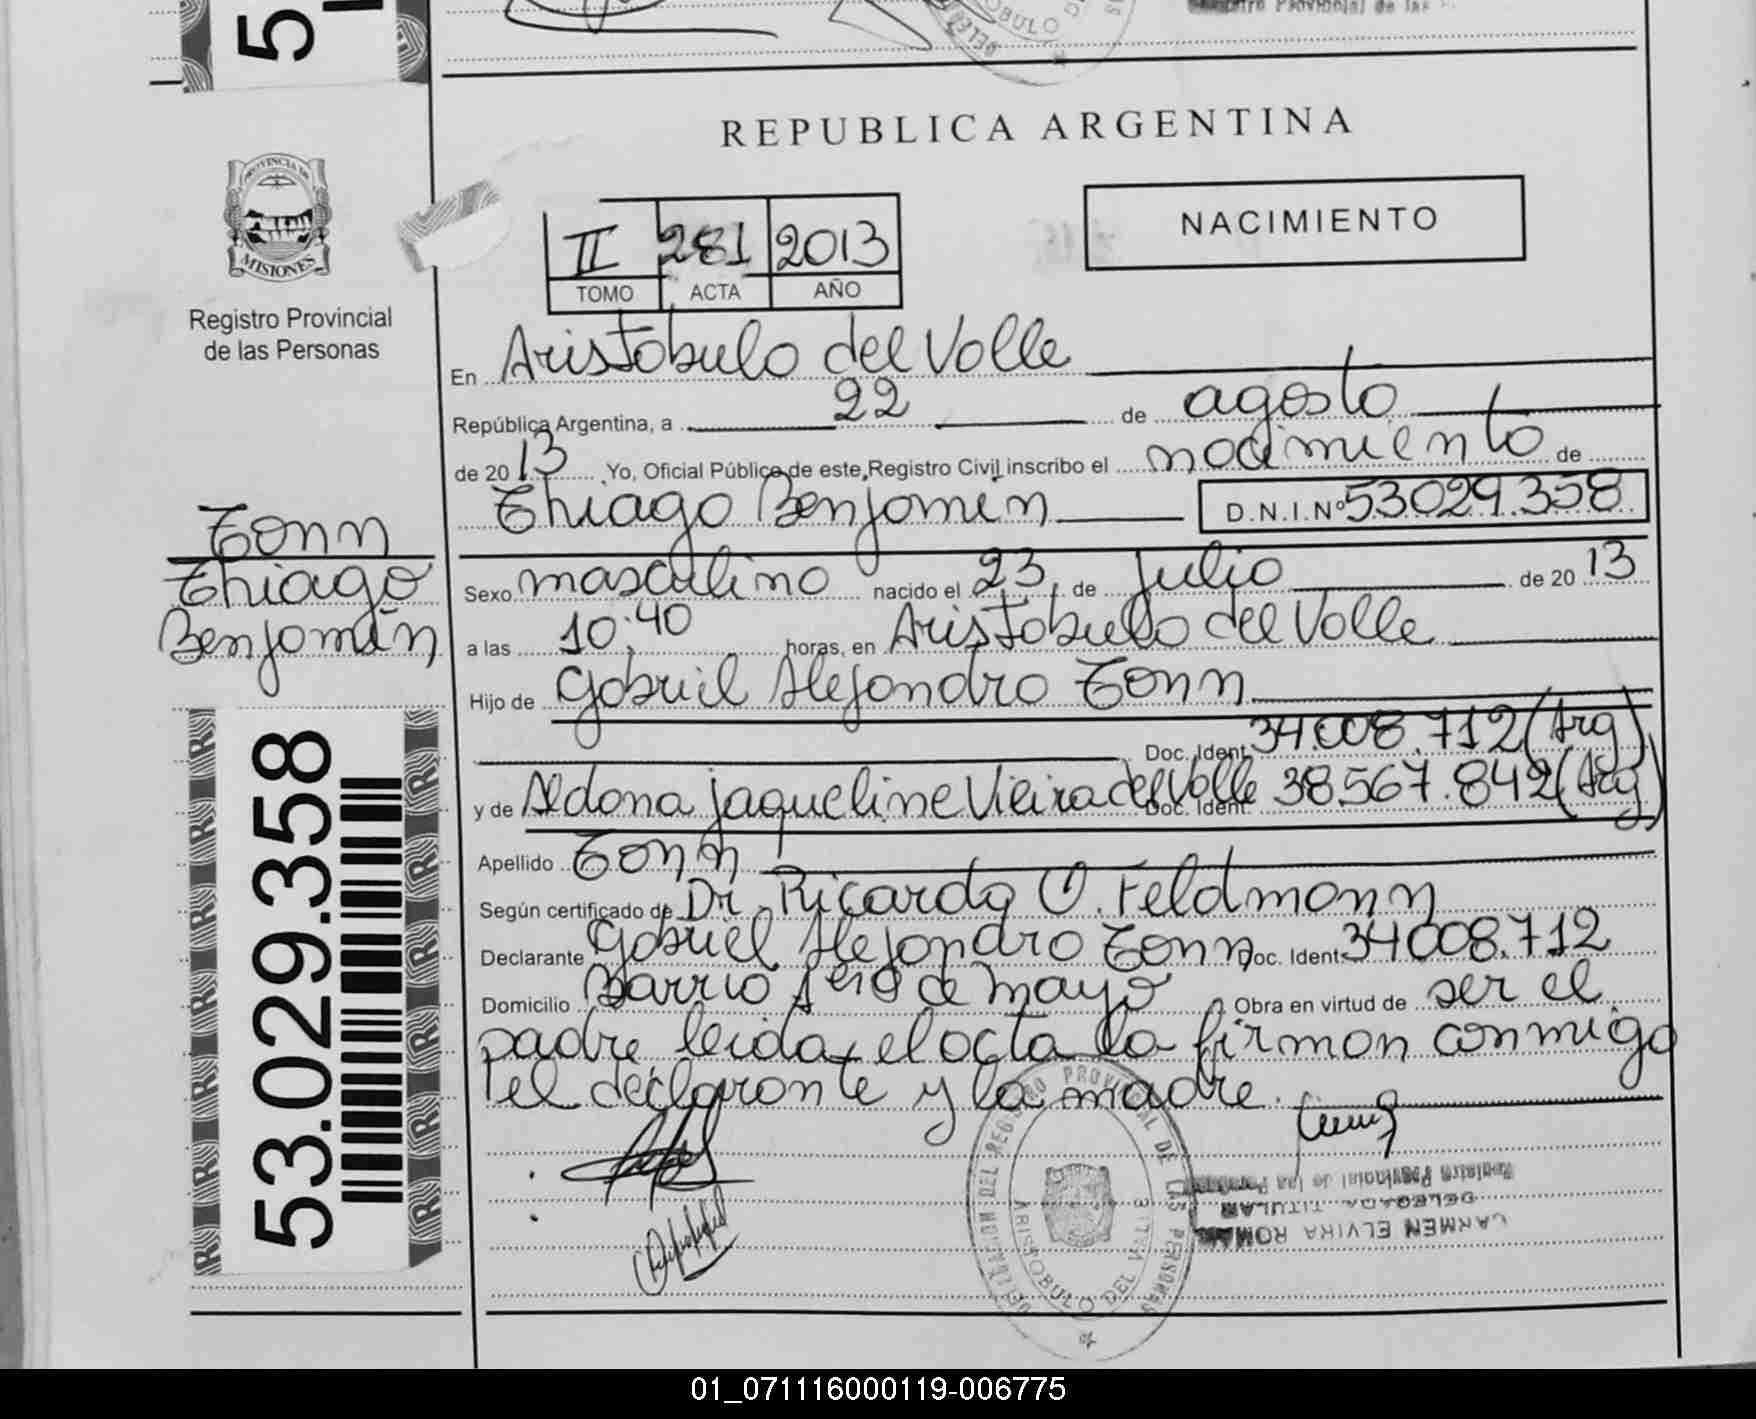 5
REPUBLICA ARGENTINA
PROVINCIA DE
MISIONES
Registro Provincial
de las Personas
II 281 2013
TOMO ACTA AÑO
NACIMIENTO
En Aristobulo del Valle
República Argentina, a 22 de agosto
de 2013 Yo, Oficial Público de este Registro Civil inscribo el nacimiento de
Thiago Benjamin D.N.I.Nº 53029.358
Tonn
Thiago
Benjamin
Sexo masculino nacido el 23 de julio de 2013
a las 10:40 horas, en Aristobulo del Valle
Hijo de Gabriel Alejandro Tonn
Doc. Ident. 34.008.712 (Arg)
y de Aldana Jaqueline Vieira del Valle Doc. Ident. 38.567.842 (Arg)
Apellido Tonn
Según certificado de Dr. Ricardo O. Feldmann
Declarante Gabriel Alejandro Tonn Doc. Ident. 34008.712
Domicilio Barrio 1ero de mayo Obra en virtud de ser el
padre leida el acta la firman conmigo
el declarante y la madre.
53.029.358
DELEGACION DEL REGISTRO PROVINCIAL DE LAS PERSONAS
ARISTOBULO DEL VALLE
Registro Provincial de las Personas
DELEGADA TITULAR
CARMEN ELVIRA ROMAN
01_071116000119-006775